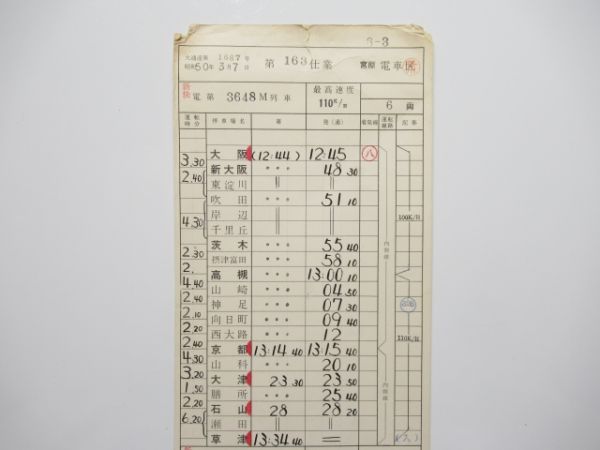 3-3
大鉄達第 1687 号
昭和50年 3月7日
第 163 仕業
宮原 電車区
新快
電 第 3648M 列車
最高速度
110K/H
6 両
運転時分 停車場名 着 発(通) 電気機 運転線路 記事
大阪 (12:44) 12:45 八
3.30
新大阪 ・・・ 48 30
2.40
東淀川 || ||
吹田 ・・・ 51 10
岸辺 || || 100K/H
4.30
千里丘 || ||
茨木 ・・・ 55 40
2.30
摂津富田 ・・・ 58 10
2.
高槻 ・・・ 13:00 10
4.40
山崎 ・・・ 04 50
2.40
神足 ・・・ 07 30
2.10
向日町 ・・・ 09 40
2.20
西大路 ・・・ 12
2.40
110K/H
京都 13:14 40 13:15 40
4.30
山科 ・・・ 20 10
3.20
大津 23 30 23 50
1.50
膳所 ・・・ 25 40
2.20
石山 28 28 20
6.20
瀬田 || ||
草津 13:34 40 =
内側線